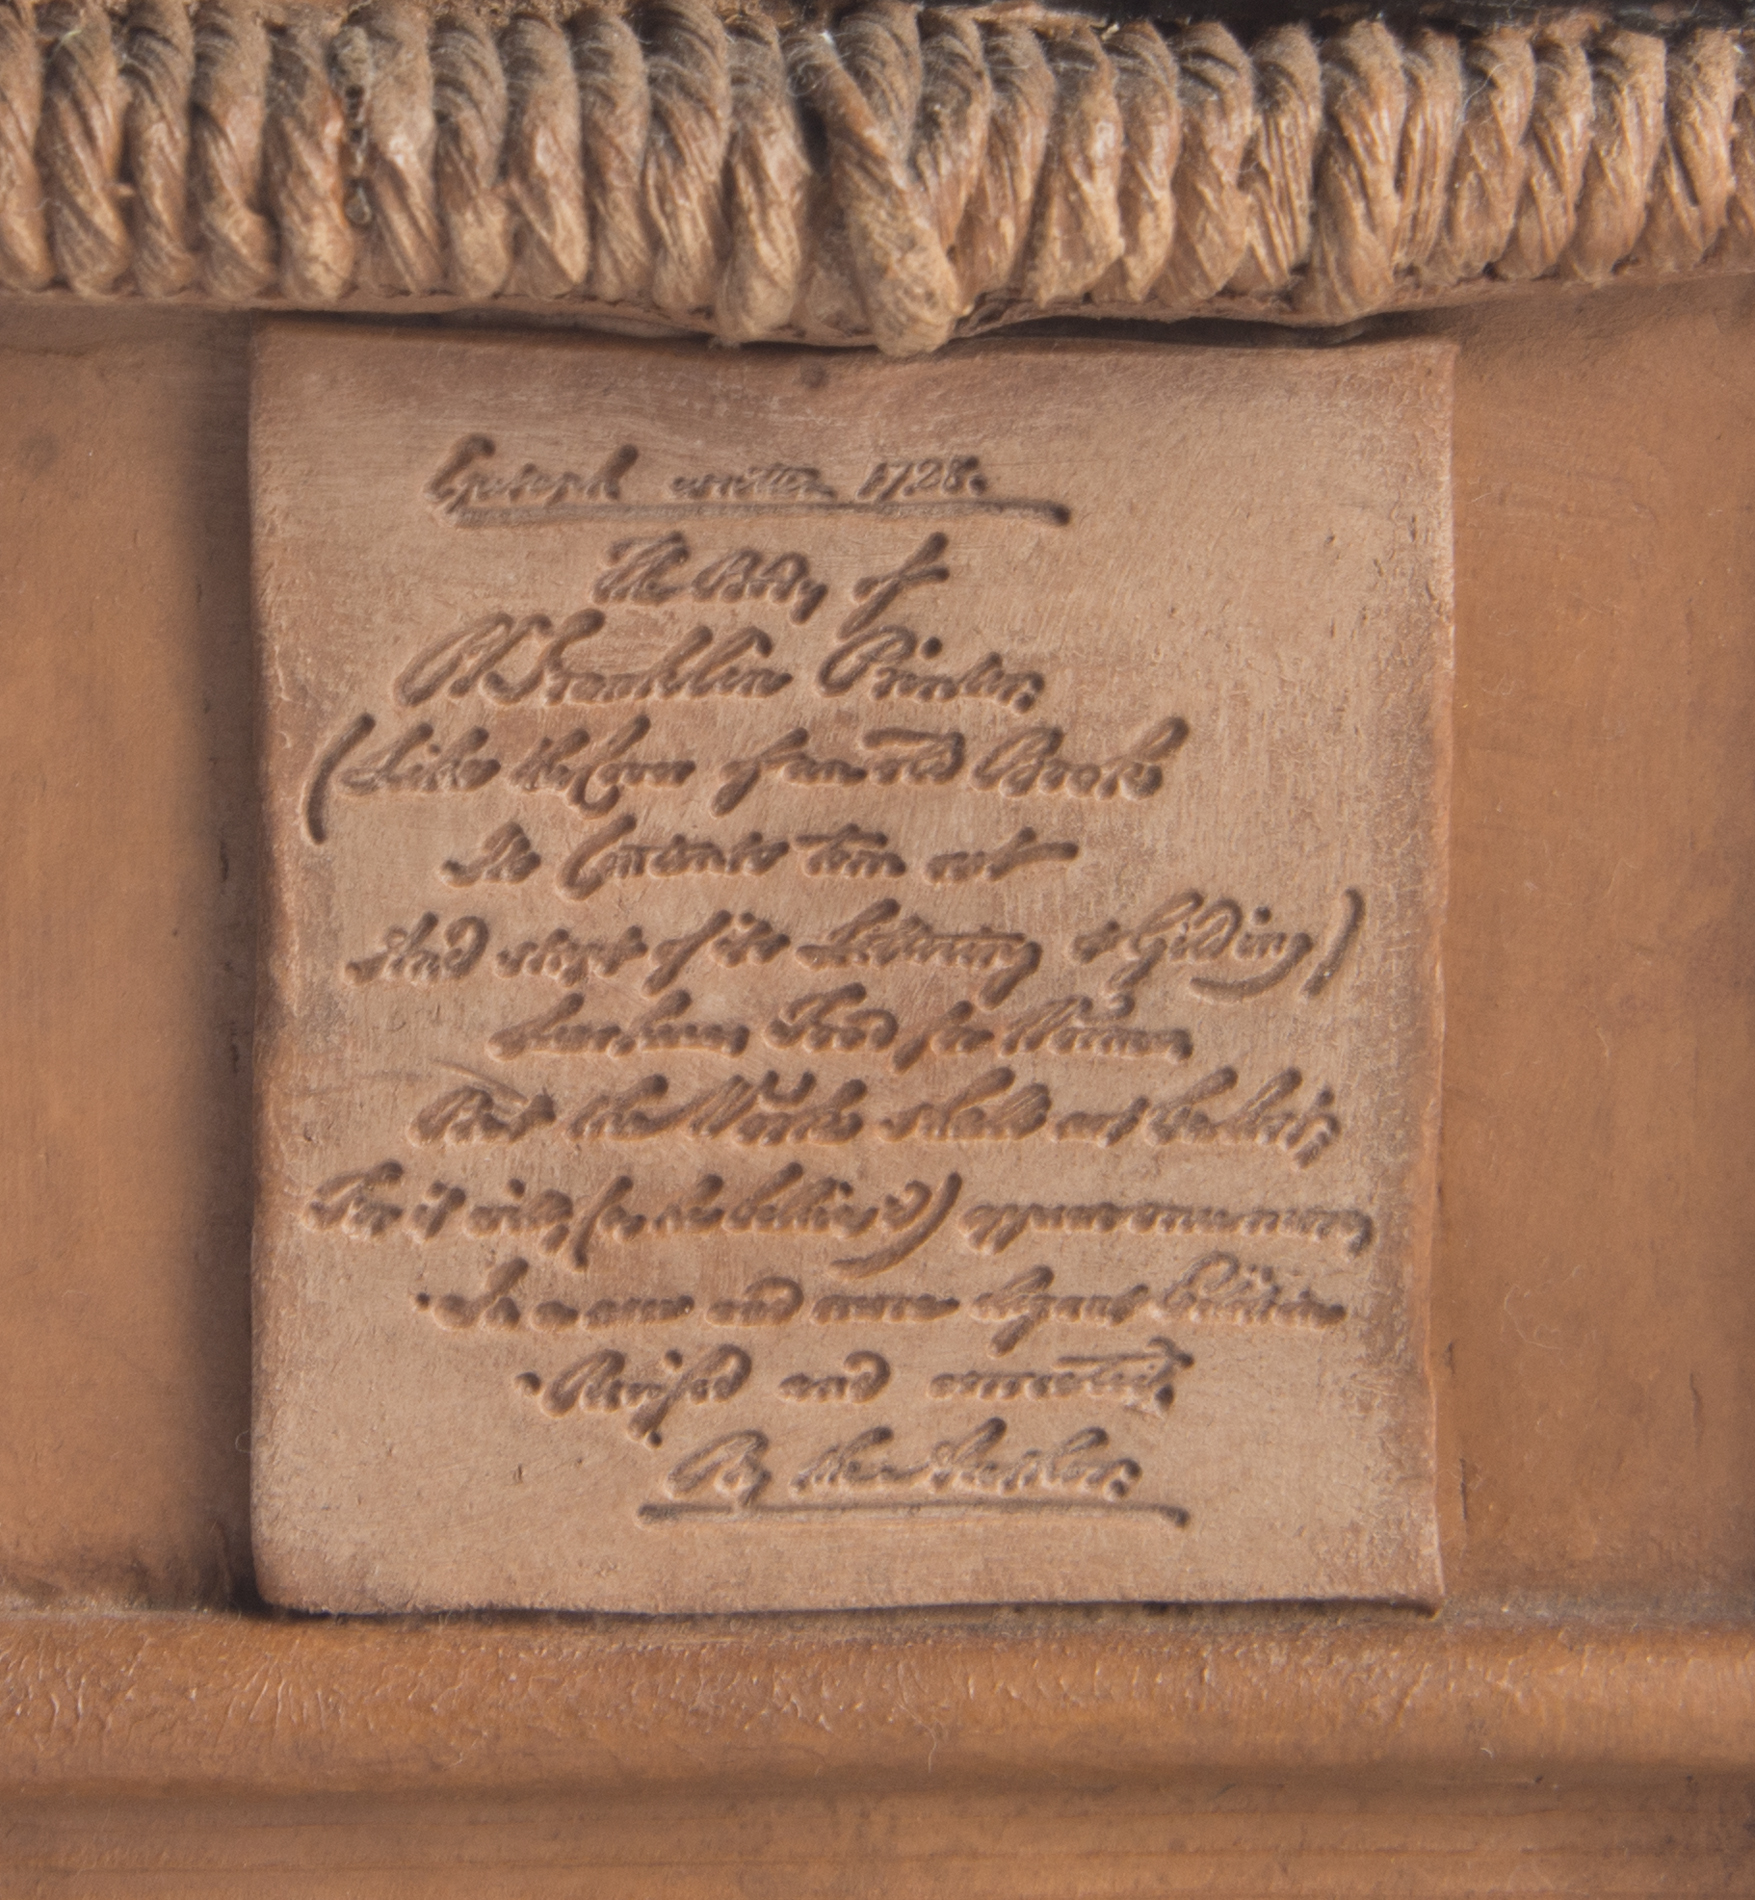 Epitaph written 1728.
The Body of
B Franklin Printer,
(Like the Cover of an old Book
Its Contents torn out
And stript of its Lettering & Gilding)
Lies here, Food for Worms.
But the Work shall not be lost;
For it will, (as he believ'd) appear once more,
In a new and more elegant Edition
Revised and corrected,
By the Author.